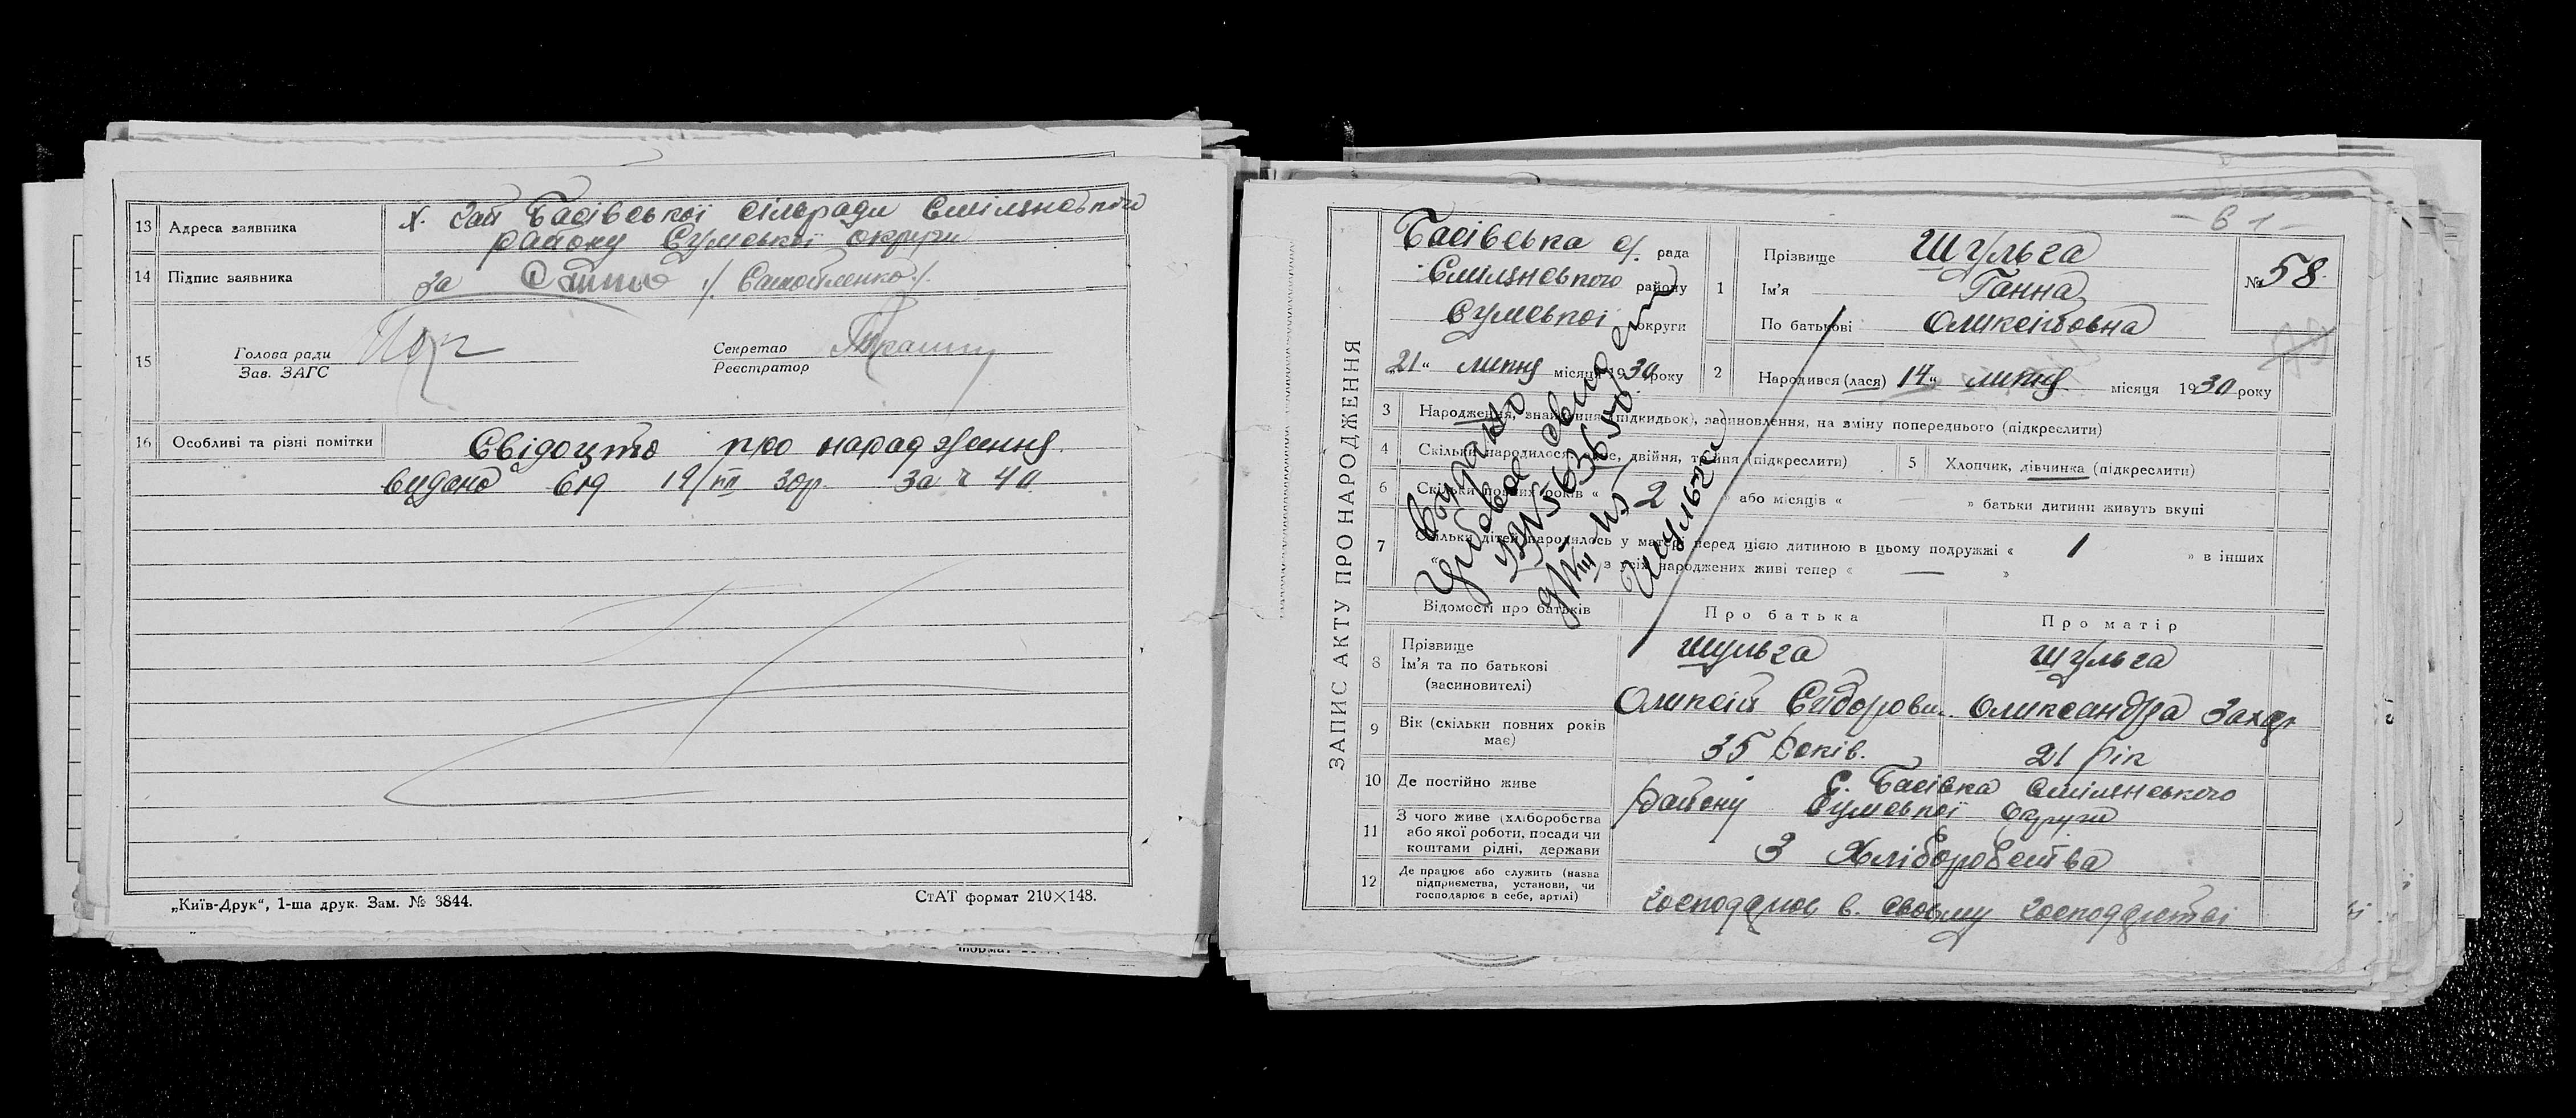 13 Адреса заявника х. Гай Басівської сільради Смілянського
району Сумської округи
14 Підпис заявника За /Самойленко/.
15 Голова ради
Зав. ЗАГС
Секретар
Реєстратор
16 Особливі та різні помітки Свідоцтво про народження
видано від 19/VII 30р. За ч 40
„Київ-Друк“, 1-ша друк. Зам. № 3844.
СтАТ формат 210×148.
ЗАПИС АКТУ ПРО НАРОДЖЕННЯ
Басівська с/. рада
Смілянського району
Сумської округи
„21“ липня місяця 1930 року
1 Прізвище Шульга
Ім'я Ганна
По батькові Оликсіївна
№ 58
2 Народився (лася) 14 „ липня місяця 1930 року
3 Народження, знайдення (підкидьок), засиновлення, на зміну попереднього (підкреслити)
4 Скільки народилося: одне, двійня, трійня (підкреслити)
5 Хлопчик, дівчинка (підкреслити)
6 Скільки повних років « 2 » або місяців « » батьки дитини живуть вкупі
7 Скільки дітей народилось у матері перед цією дитиною в цьому подружжі « 1 » в інших
« » з усіх народжених живі тепер « — »
Відомості про батьків Про батька Про матір
8 Прізвище
Ім'я та по батькові
(засиновителі)
Шульга Шульга
Оликсій Сидорови. Олександра Захар
9 Вік (скільки повних років має) 35 років. 21 рік
10 Де постійно живе С. Басівка Смілянського
району Сумської округи
11 З чого живе (хліборобства
або якої роботи, посади чи
коштами рідні, держави
З Хліборобства
12 Де працює або служить (назва
підприємства, установи, чи
господарює в себе, артілі)
господарює в. своєму господарстві